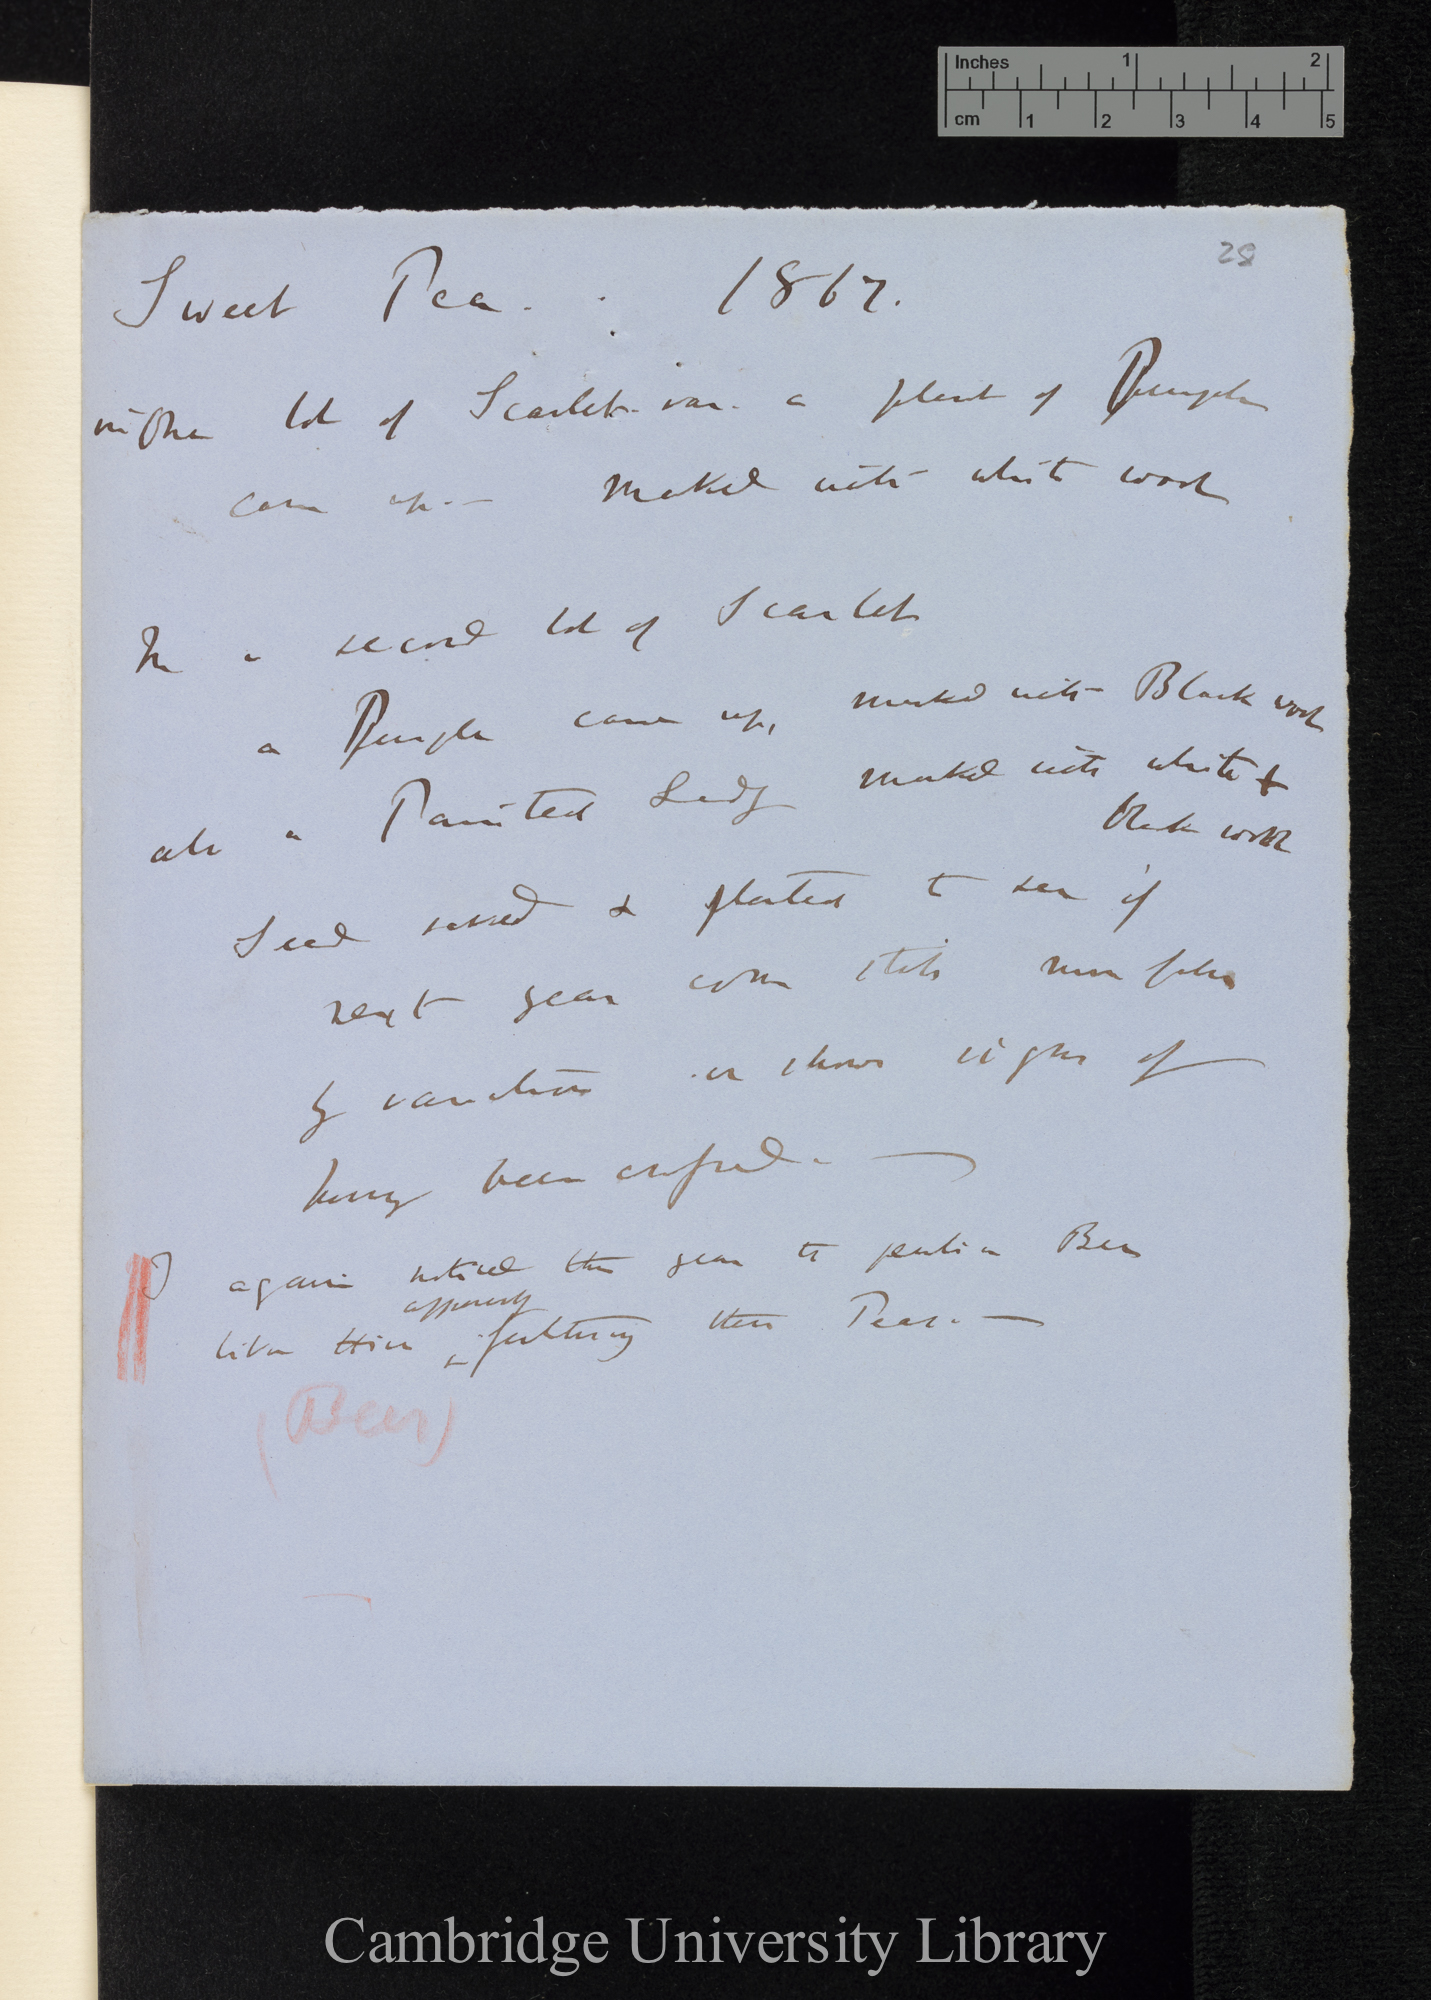 Inches 1 2
cm 1 2 3 4 5
28
Sweet Pea. 1867.
in one lot of Scarlet var. a plant of Purple
came up. — Marked with white wool
In a second lot of Scarlet
a Purple came up, marked with Black wool
also a Painted Lady marked with white &
black wool
Seed saved & planted to see if
next year come still more
by variation or shows signs of
having been crossed. —
I again noticed this year the Bees
apparently
like Hive fertilising these Peas. —
(Bees)
Cambridge University Library